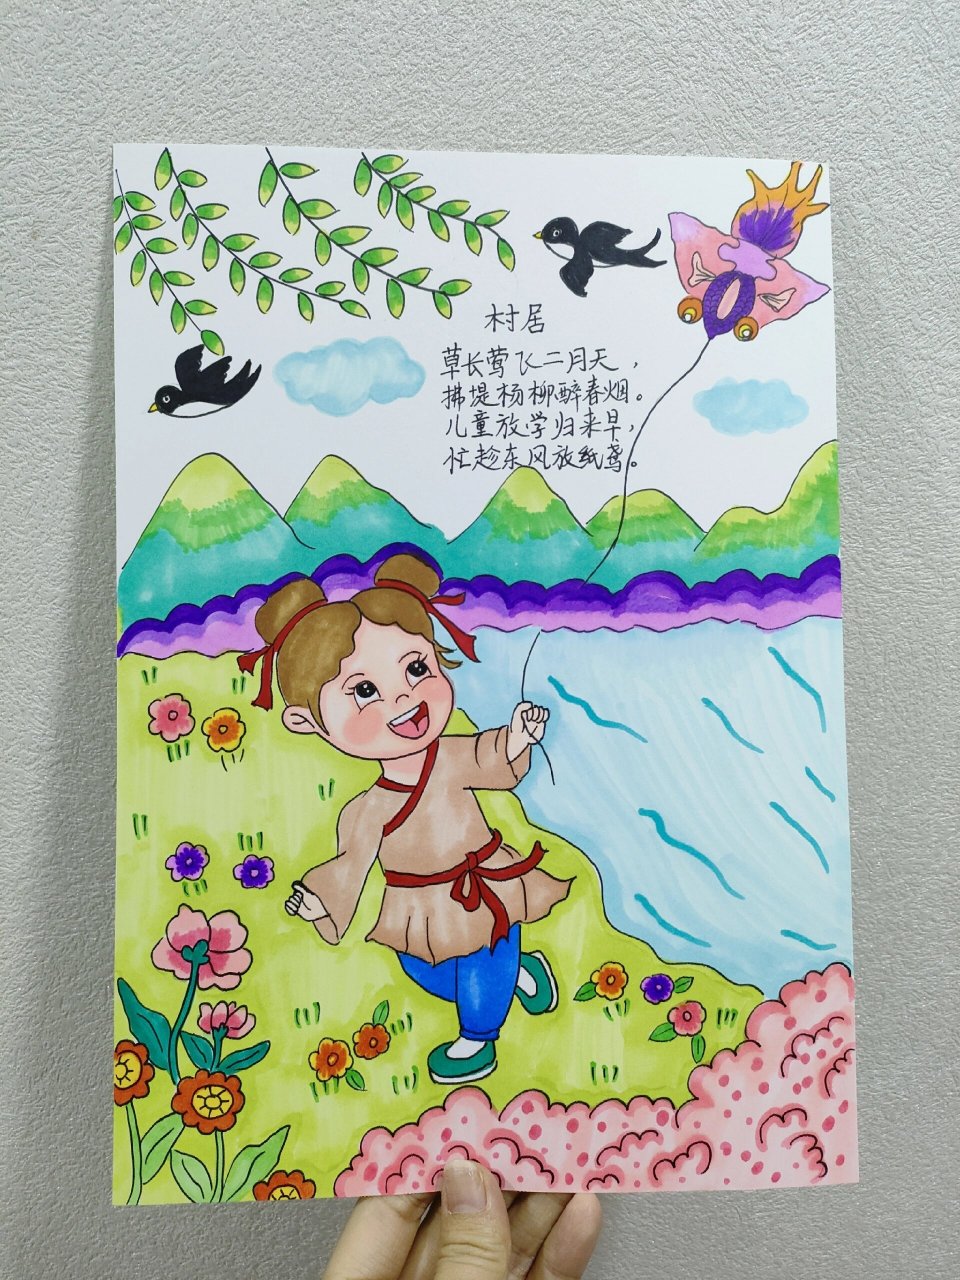 村居
草长莺飞二月天，
拂堤杨柳醉春烟。
儿童放学归来早，
忙趁东风放纸鸢。